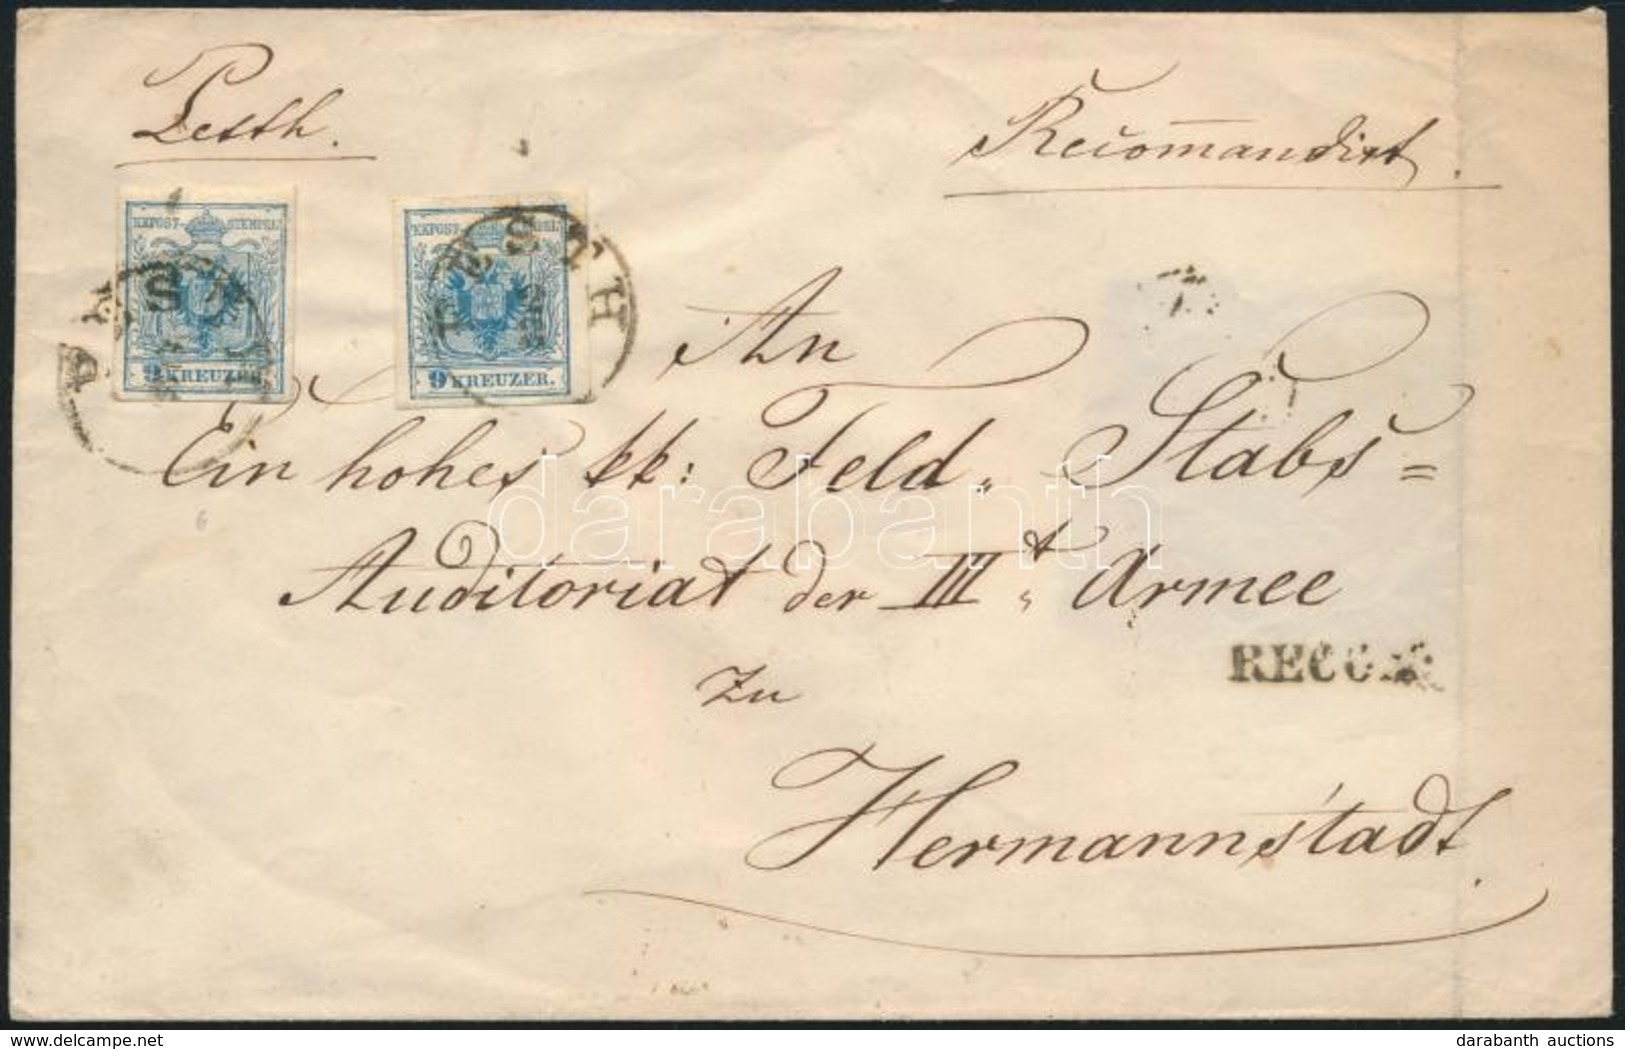 Pesth.
Recom̄andirt.
KKPOST-STEMPEL
9 KREUZER.
PESTH
KKPOST-STEMPEL
9 KREUZER.
PESTH
An
Ein hohes kk: Feld„ Stabs=
Auditoriat der III„t Armee
zu
RECOM
Hermannstadt.
darabanth
darabanth auctions